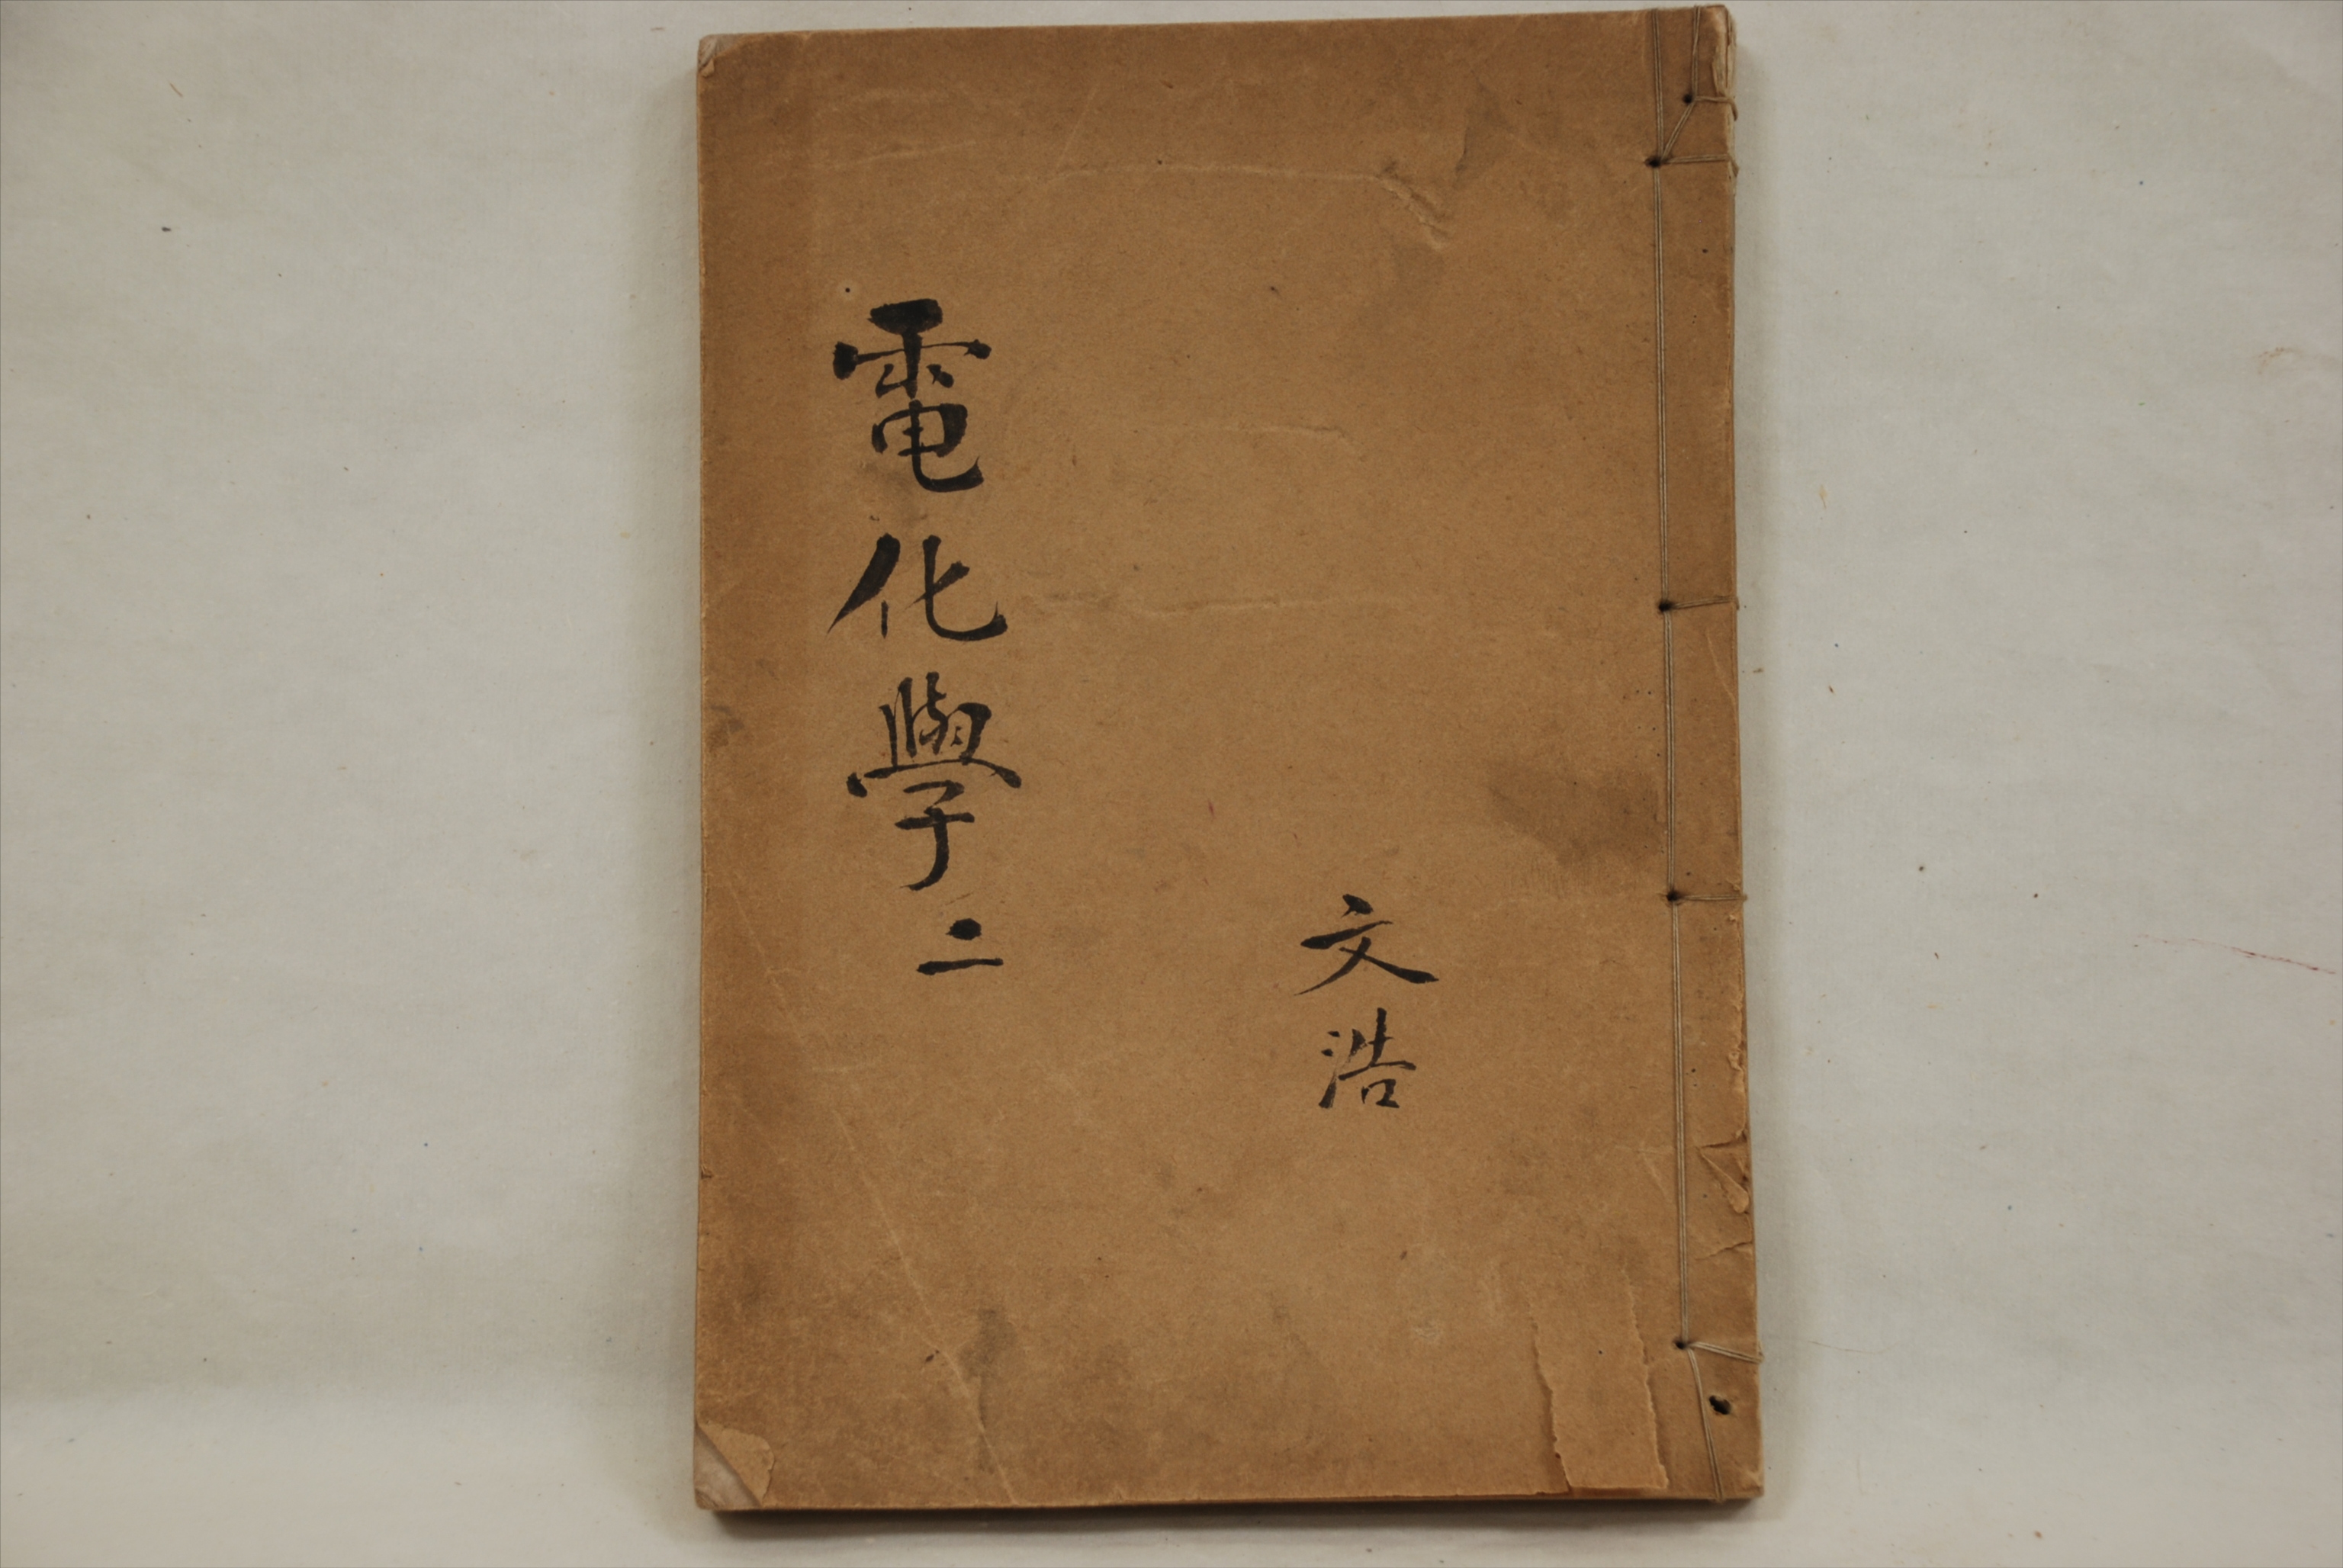 電化學二
文浩